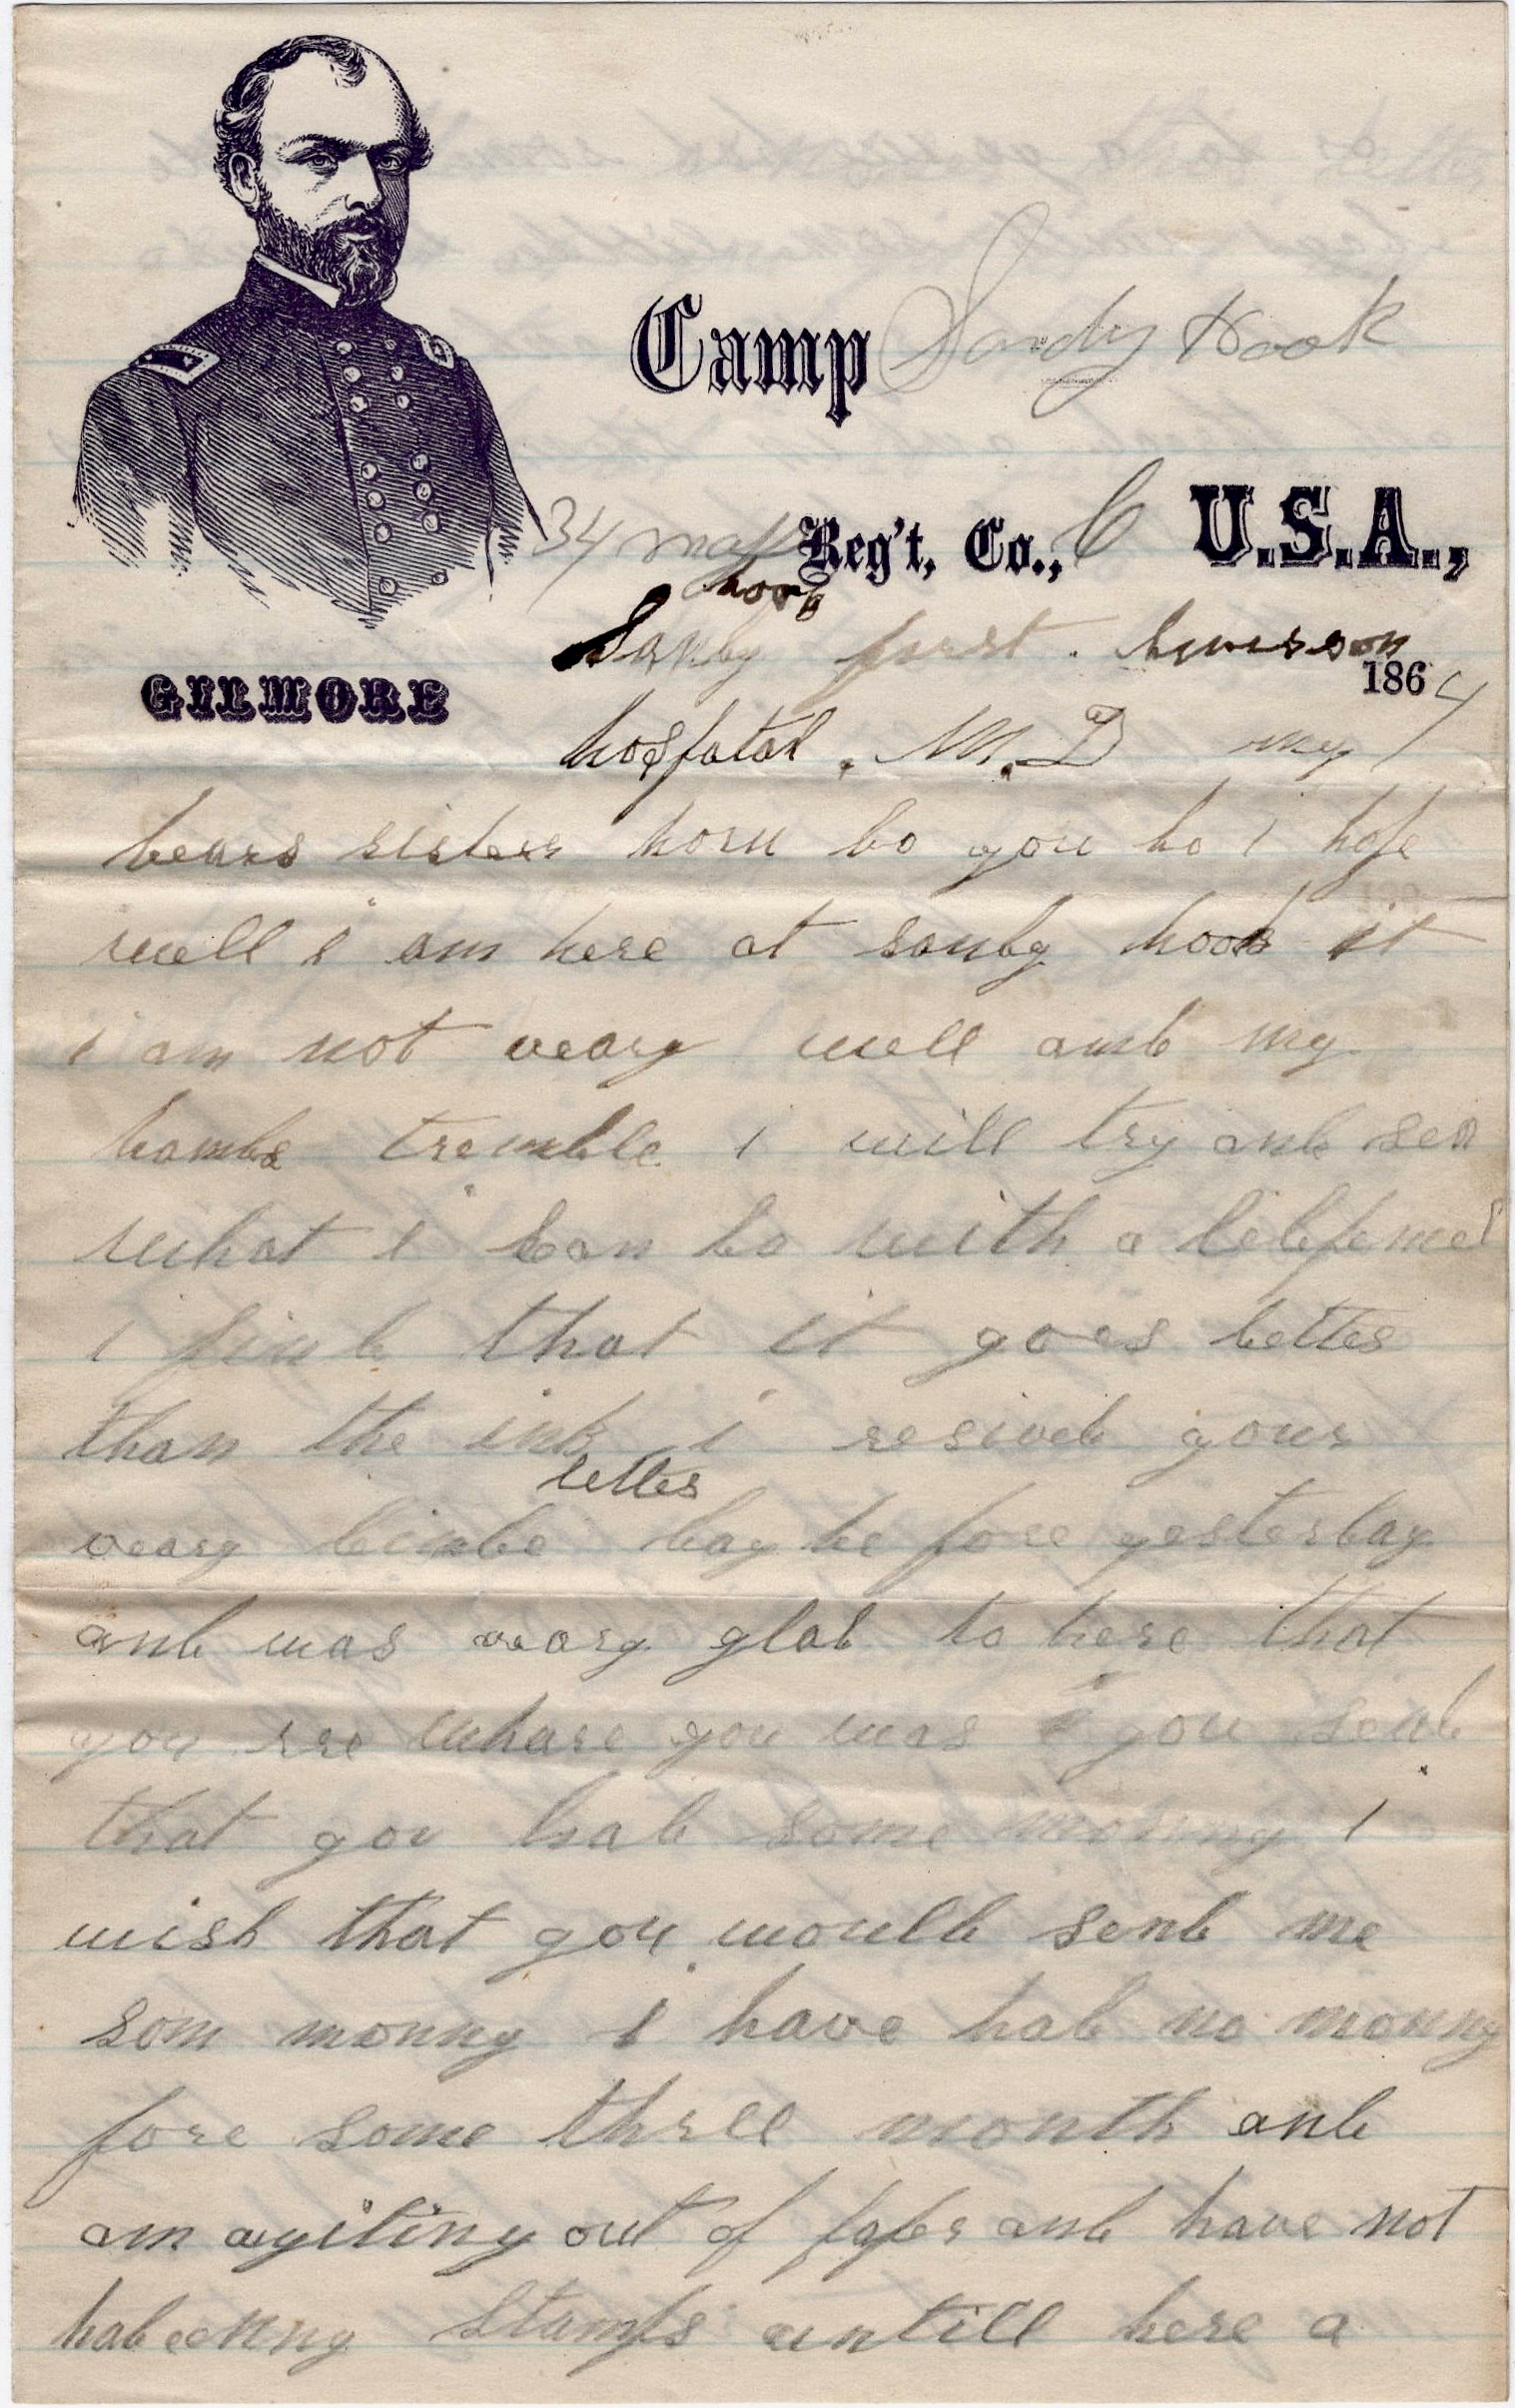 Camp Sandy Hook
34 mass Reg't, Co., C U.S.A.,
hook
Sanby furst . divisson
GILMORE
1864
hosfatal . M. D my
bears sister horu bo you bo i hofe
well i am here at sanby hook it
i am not veary well anb my
hambs tremble i will try anb see
what i can bo with a lebfemcl
i finb that it goes better
than the ink i resiveb your
letter
veary binbe bay be fore yesterbay
anb was veary glab to here that
you rre whare you was you senb
that you hab some monny i
wish that you woulb senb me
som monny i have hab no monny
fore some three month anb
am agiting out of fafer anb have not
hab enny stamfs untill here a